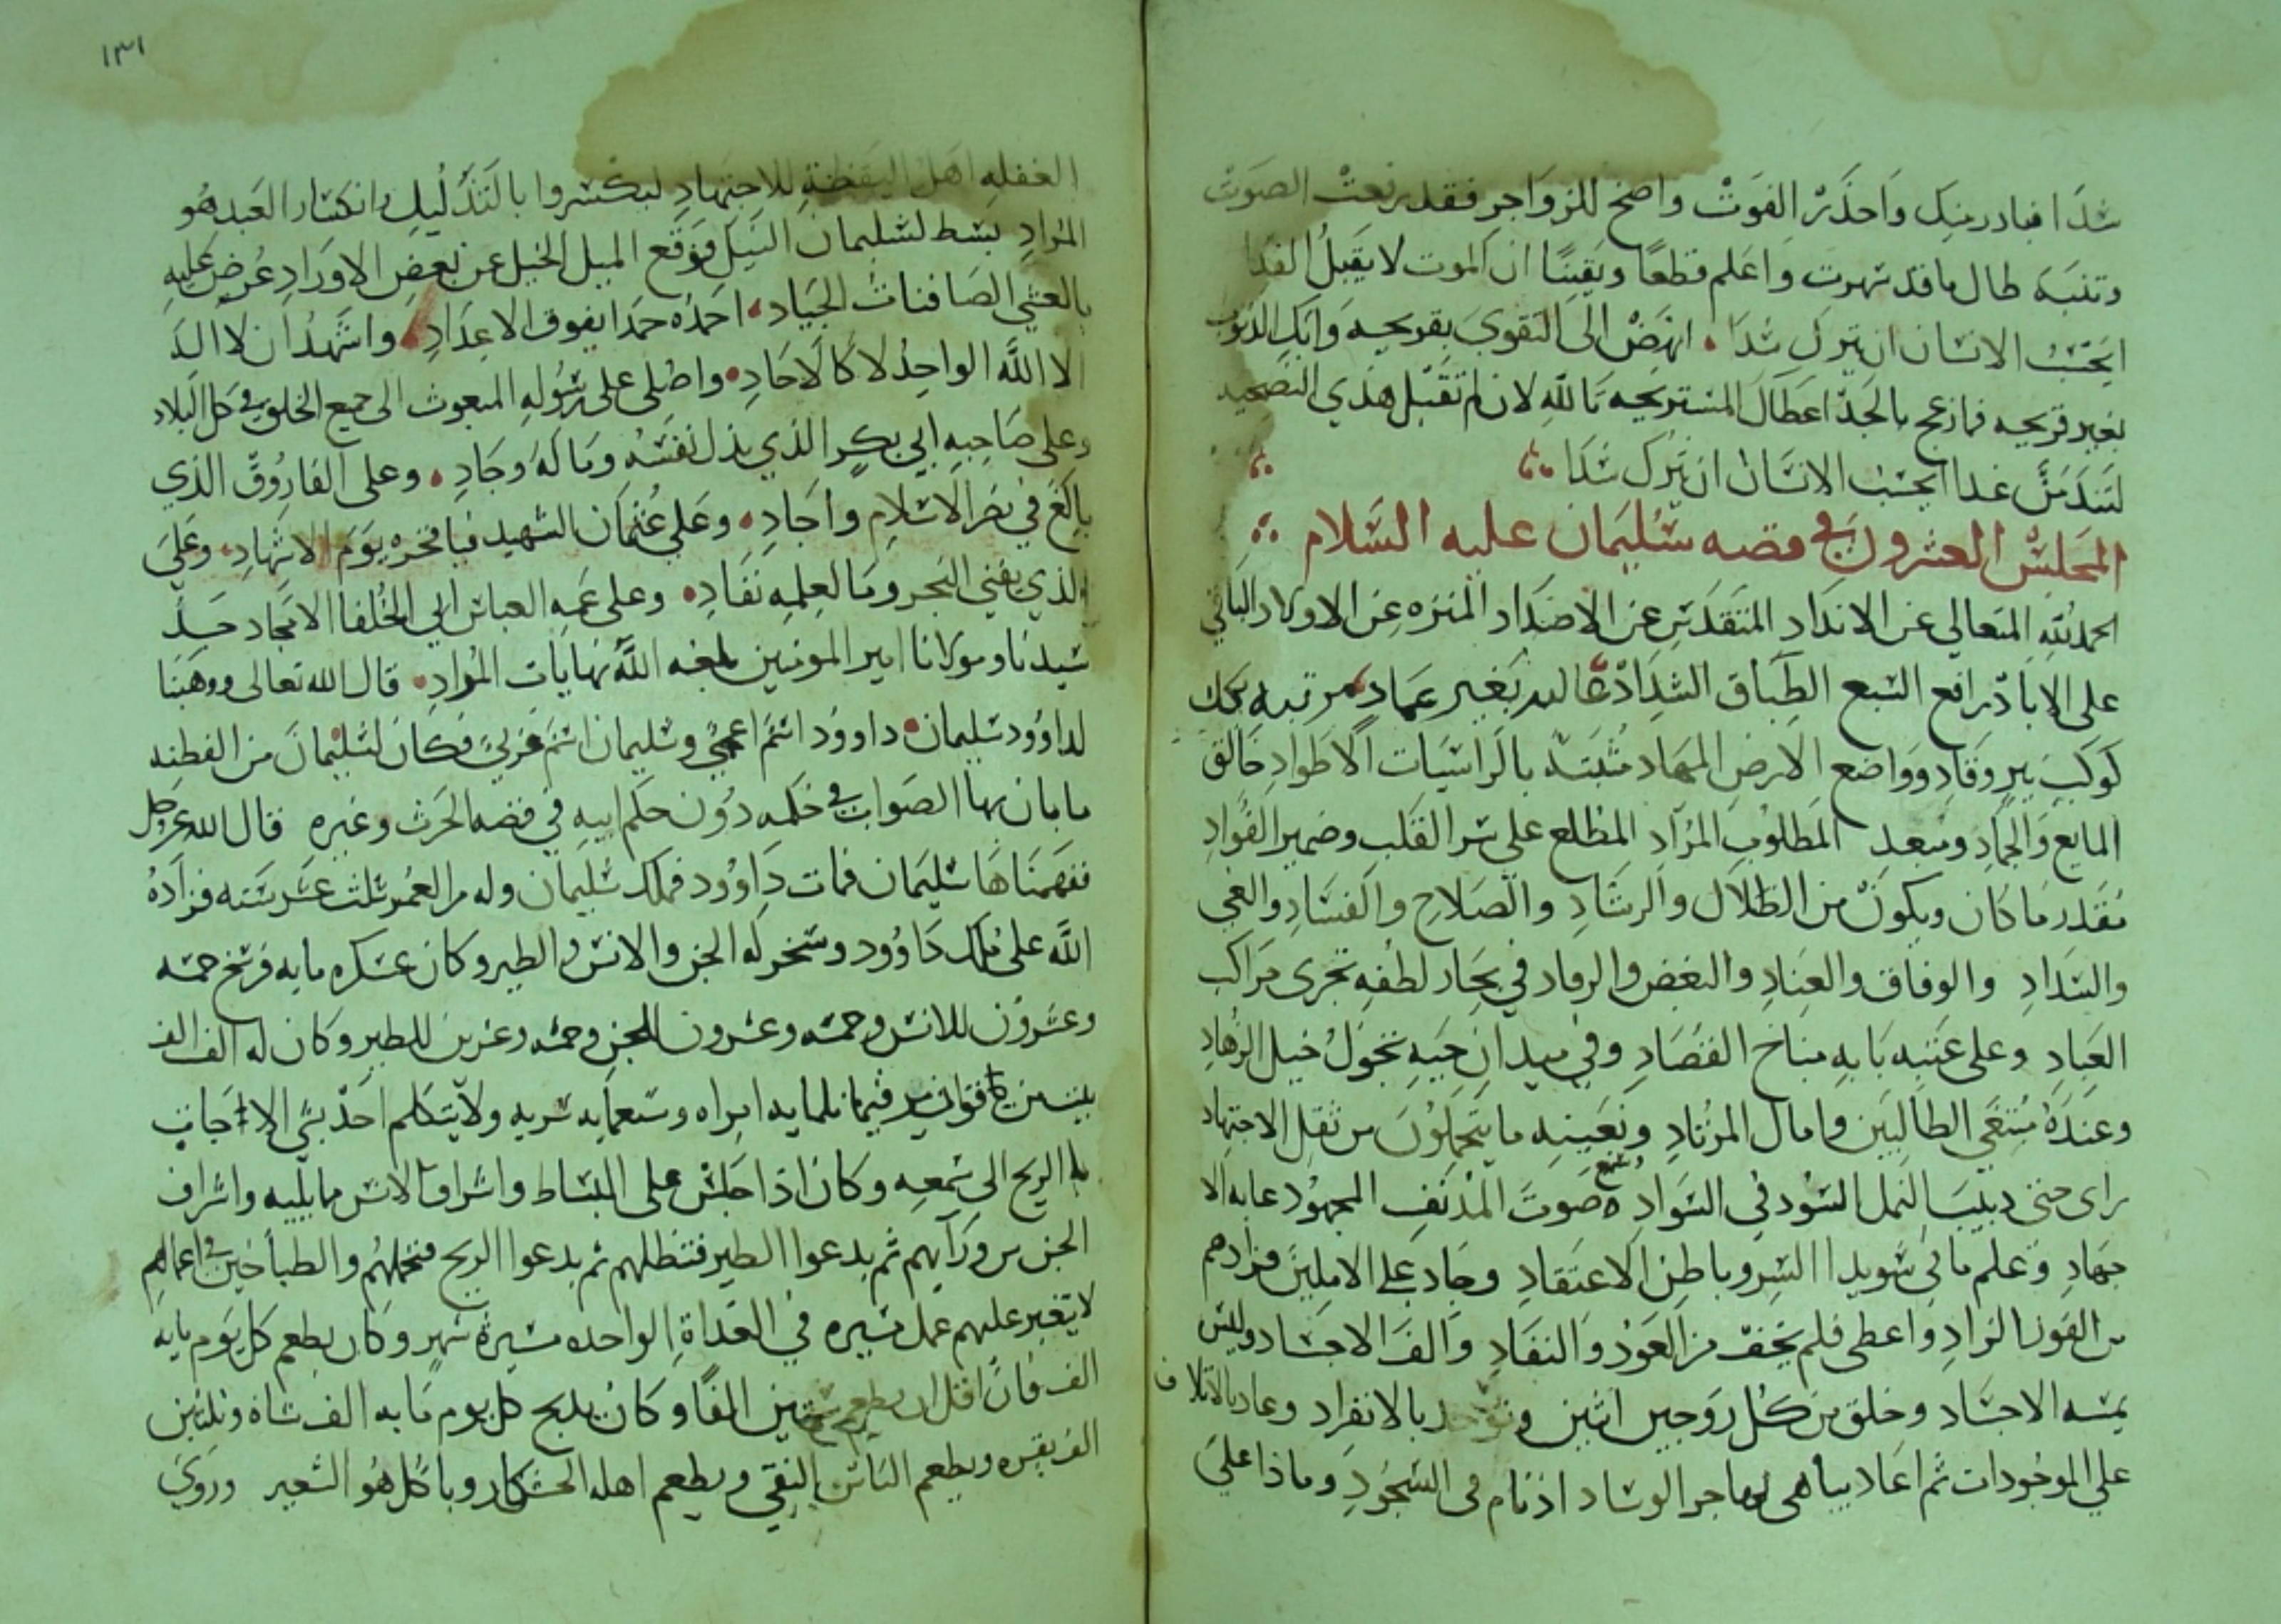 سدا فبادر منك واحذر الفوت واصخ للزواجر فقد رفعت الصوت
وتنبه طال ما قد سهرت واعلم قطعا ويقينا ان الموت لا يقبل الفدا
ايحسب الانسان ان يترك سدا انهض الى التقوى بقريحه وابك الذنوب
بعين قريحه فازعج بالجد اعطال المستريحه تالله لان لم تقبل هذي النصيحه
لتندمن غدا ايحسب الانسان ان يترك سدا
المجلس العشرون في قصه سليمان عليه السلام
الحمد لله المتعالي عن الانداد المتقدس عن الاضداد المنزه عن الاولاد الباقي
على الاباد رافع السبع الطباق الشداد عاليه بغير عماد مرتبه بكل
كوكب نير وقاد وواضع الارض المهاد مثبته بالراسيات الاطواد خالق
المايع والجماد ومبعد المطلوب المراد المطلع على سر القلب وضمير الفواد
مقدر ما كان ويكون من الظلال والرشاد والصلاح والفساد والغي
والسداد والوفاق والعناد والبغض والوداد في بحار لطفه تجرى مراكب
العباد وعلى عتبه بابه مناخ القصاد وفي ميدان حبه تجول خيل الزهاد
وعنده مبتغى الطالبين وامال المرتاد وبعينه ما يتحملون من ثقل الاجتهاد
راى حتى دبيب النمل السود في السواد سمع صوت المدنف المجهود غايه الا
جهاد وعلم ما في سويدا السر وباطن الاعتقاد وجاد على الاملين فزادهم
من القوت الزاد واعطى فلم يخف من العوز والنفاد والف الاجساد وليس
يشبه الاجساد وخلق من كل زوجين اثنين وتوحد بالانفراد وعاد بالاتلاف
على الموجودات ثم اعاد يباهي بهاجر الوساد اذ نام في السجود وماذا على
١٣١
الغفله اهل اليقظة للاجتهاد لينكسروا بالتذليل وانكسار العبد هو
المراد بسط لسليمان النيل فوقع الميل الخيل عن بعض الاوراد عرض عليه
بالعشي الصافنات الجياد احمده حمدا يفوق الاعداد واشهد ان لا اله
الا الله الواحد لا كالاحاد واصلى على رسوله المبعوث الى جميع الخلق في كل البلاد
وعلى صاحبه ابي بكر الذي بذل نفسه وماله وجاد وعلى الفاروق الذي
بالغ في نصر الاسلام واجاد وعلى عثمان الشهيد فيا فخره يوم الاشهاد وعلى
الذي يفني البحر وما لعلمه نفاد وعلى عمه العباس ابي الخلفا الامجاد جد
سيدنا ومولانا امير المومنين بلغه الله نهايات المراد قال الله تعالى ووهبنا
لداوود سليمان داوود اسم اعجمي وسليمان اسم عربي فكان لسليمان من الفطنه
ما بان بها الصواب في حكمه دون حكم ابيه في قصه الحرث وغيره قال الله عز وجل
ففهمناها سليمان فمات داوود فملك سليمان وله من العمر ثلث عشر سنه فزاده
الله على ملك داوود وسخر له الجن والانس والطير وكان عسكره مايه فرسخ خمسه
وعشرون للانس وخمسه وعشرون للجن وخمسه وعشرين للطير وكان له الف الف
بيت من فوارير فيها ثلمايه امراه وسبعمايه سريه ولا يتكلم احد بشي الا جات
به الريح الى سمعه وكان اذا جلس على البساط واشراف الانس مما يليه واشراف
الجن من ورايهم ثم يدعوا الطير فتظلهم ثم يدعوا الريح فتحملهم والطباخين في اعمالهم
لا يتغير عليهم عمل مسيره في الغداة الواحده مسيرة شهر وكان يطعم كل يوم مايه
الف فان اقل ان يطعم ستين الفا وكان يذبح كل يوم مايه الف شاة وثلثين
الف بقره ويطعم الناس النقي ويطعم اهله الخشكار وياكل هو الشعير وروى